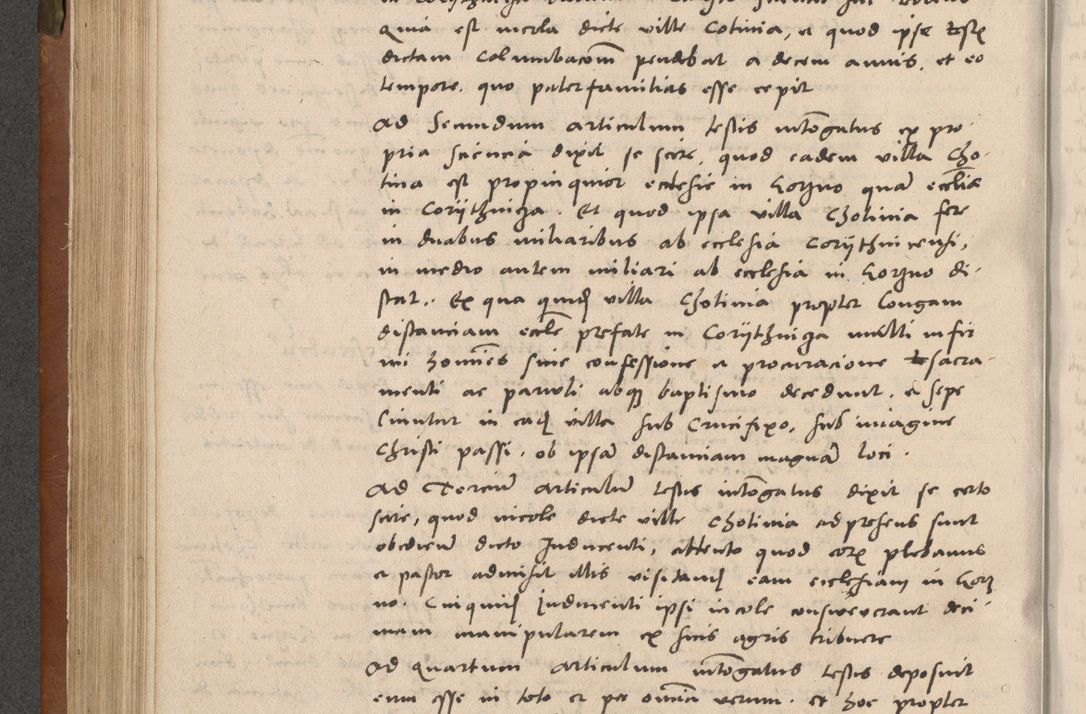 quia est incola dicte ville Cotinia, et quod ipse testis
dictam Columbacionem pendebat a decem annis, et eo
tempore, quo paterfamilias esse cepit
Ad Secundum articulum testis intōgatus ex pro-
pria sciencia dixit se scire, quod eadem villa Cho-
tinia est propinquior ecclesie in Gorzno quā eccliæ
in Corÿthnicza. Et quod ipsa villa Chotinia fere
in duabus miliaribus ab ecclesia Corÿthnicensi,
in medio autem miliari ab ecclesia in Gorzno di-
stat. Ex qua quidē villa Chotinia propter longam
distanciam eccle prefate in Corÿthnicza multi infir
mi homīes sine confessione et procuracione sacra-
menti ac paruuli absqz baptismo decedunt, et sepe
in eadē villa sub Crucifixo, sub imagine
Christi passi, ob ipsā distanciam magnā loci.
Ad Terciū articulū testis intōgatus dixit se certo
scire, quod incole dicte ville Chotinia ad presens sunt
obedienciū dicto Inducenti, attento quod eorx plebanus
et pastor admisit illis visitandi eam ecclesiam in Gorz
no. Cuiquidē Inducenti ipsi incole consueverant deci-
mam manipularem ex suis agris tribuere
Ad quartum articulum intōgatus testis deposuit
eum esse in toto et per omnia verum, et hoc propter